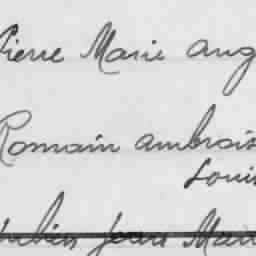 Pierre Marie Aug
Romain Ambrois
Louis
Jean Mari